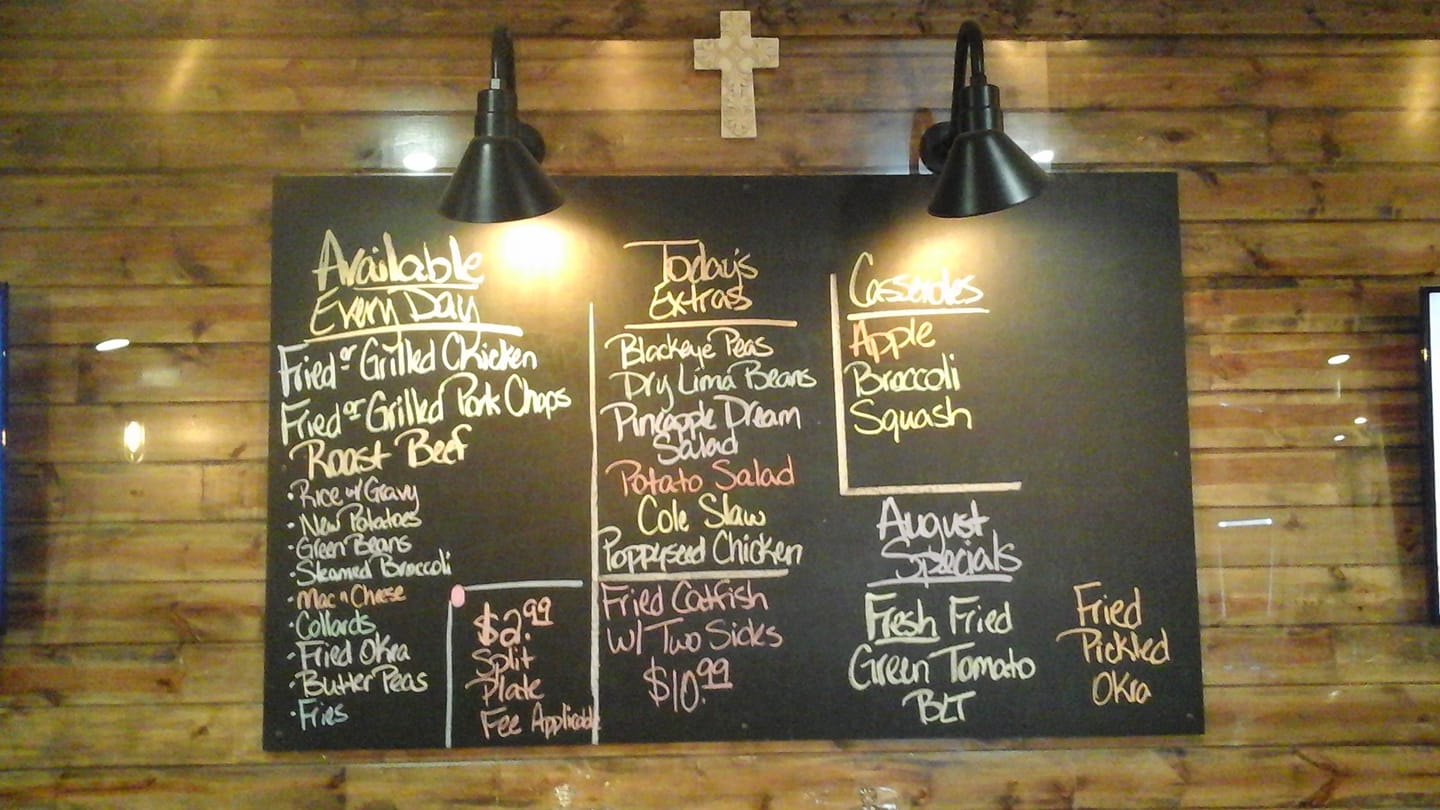 Available
Every Day
Fried or Grilled Chicken
Fried or Grilled Pork Chops
Roast Beef
• Rice w/ Gravy
• New Potatoes
• Green Beans
• Steamed Broccoli
• Mac n Cheese
• Collards
• Fried Okra
• Butter Peas
• Fries
$2.99
Split
Plate
Fee Applicable
Today's
Extras
Blackeye Peas
Dry Lima Beans
Pineapple Dream
Salad
Potato Salad
Cole Slaw
Poppyseed Chicken
Fried Catfish
w/ Two Sides
$10.99
Casseroles
Apple
Broccoli
Squash
August
Specials
Fresh Fried
Green Tomato
BLT
Fried
Pickled
Okra